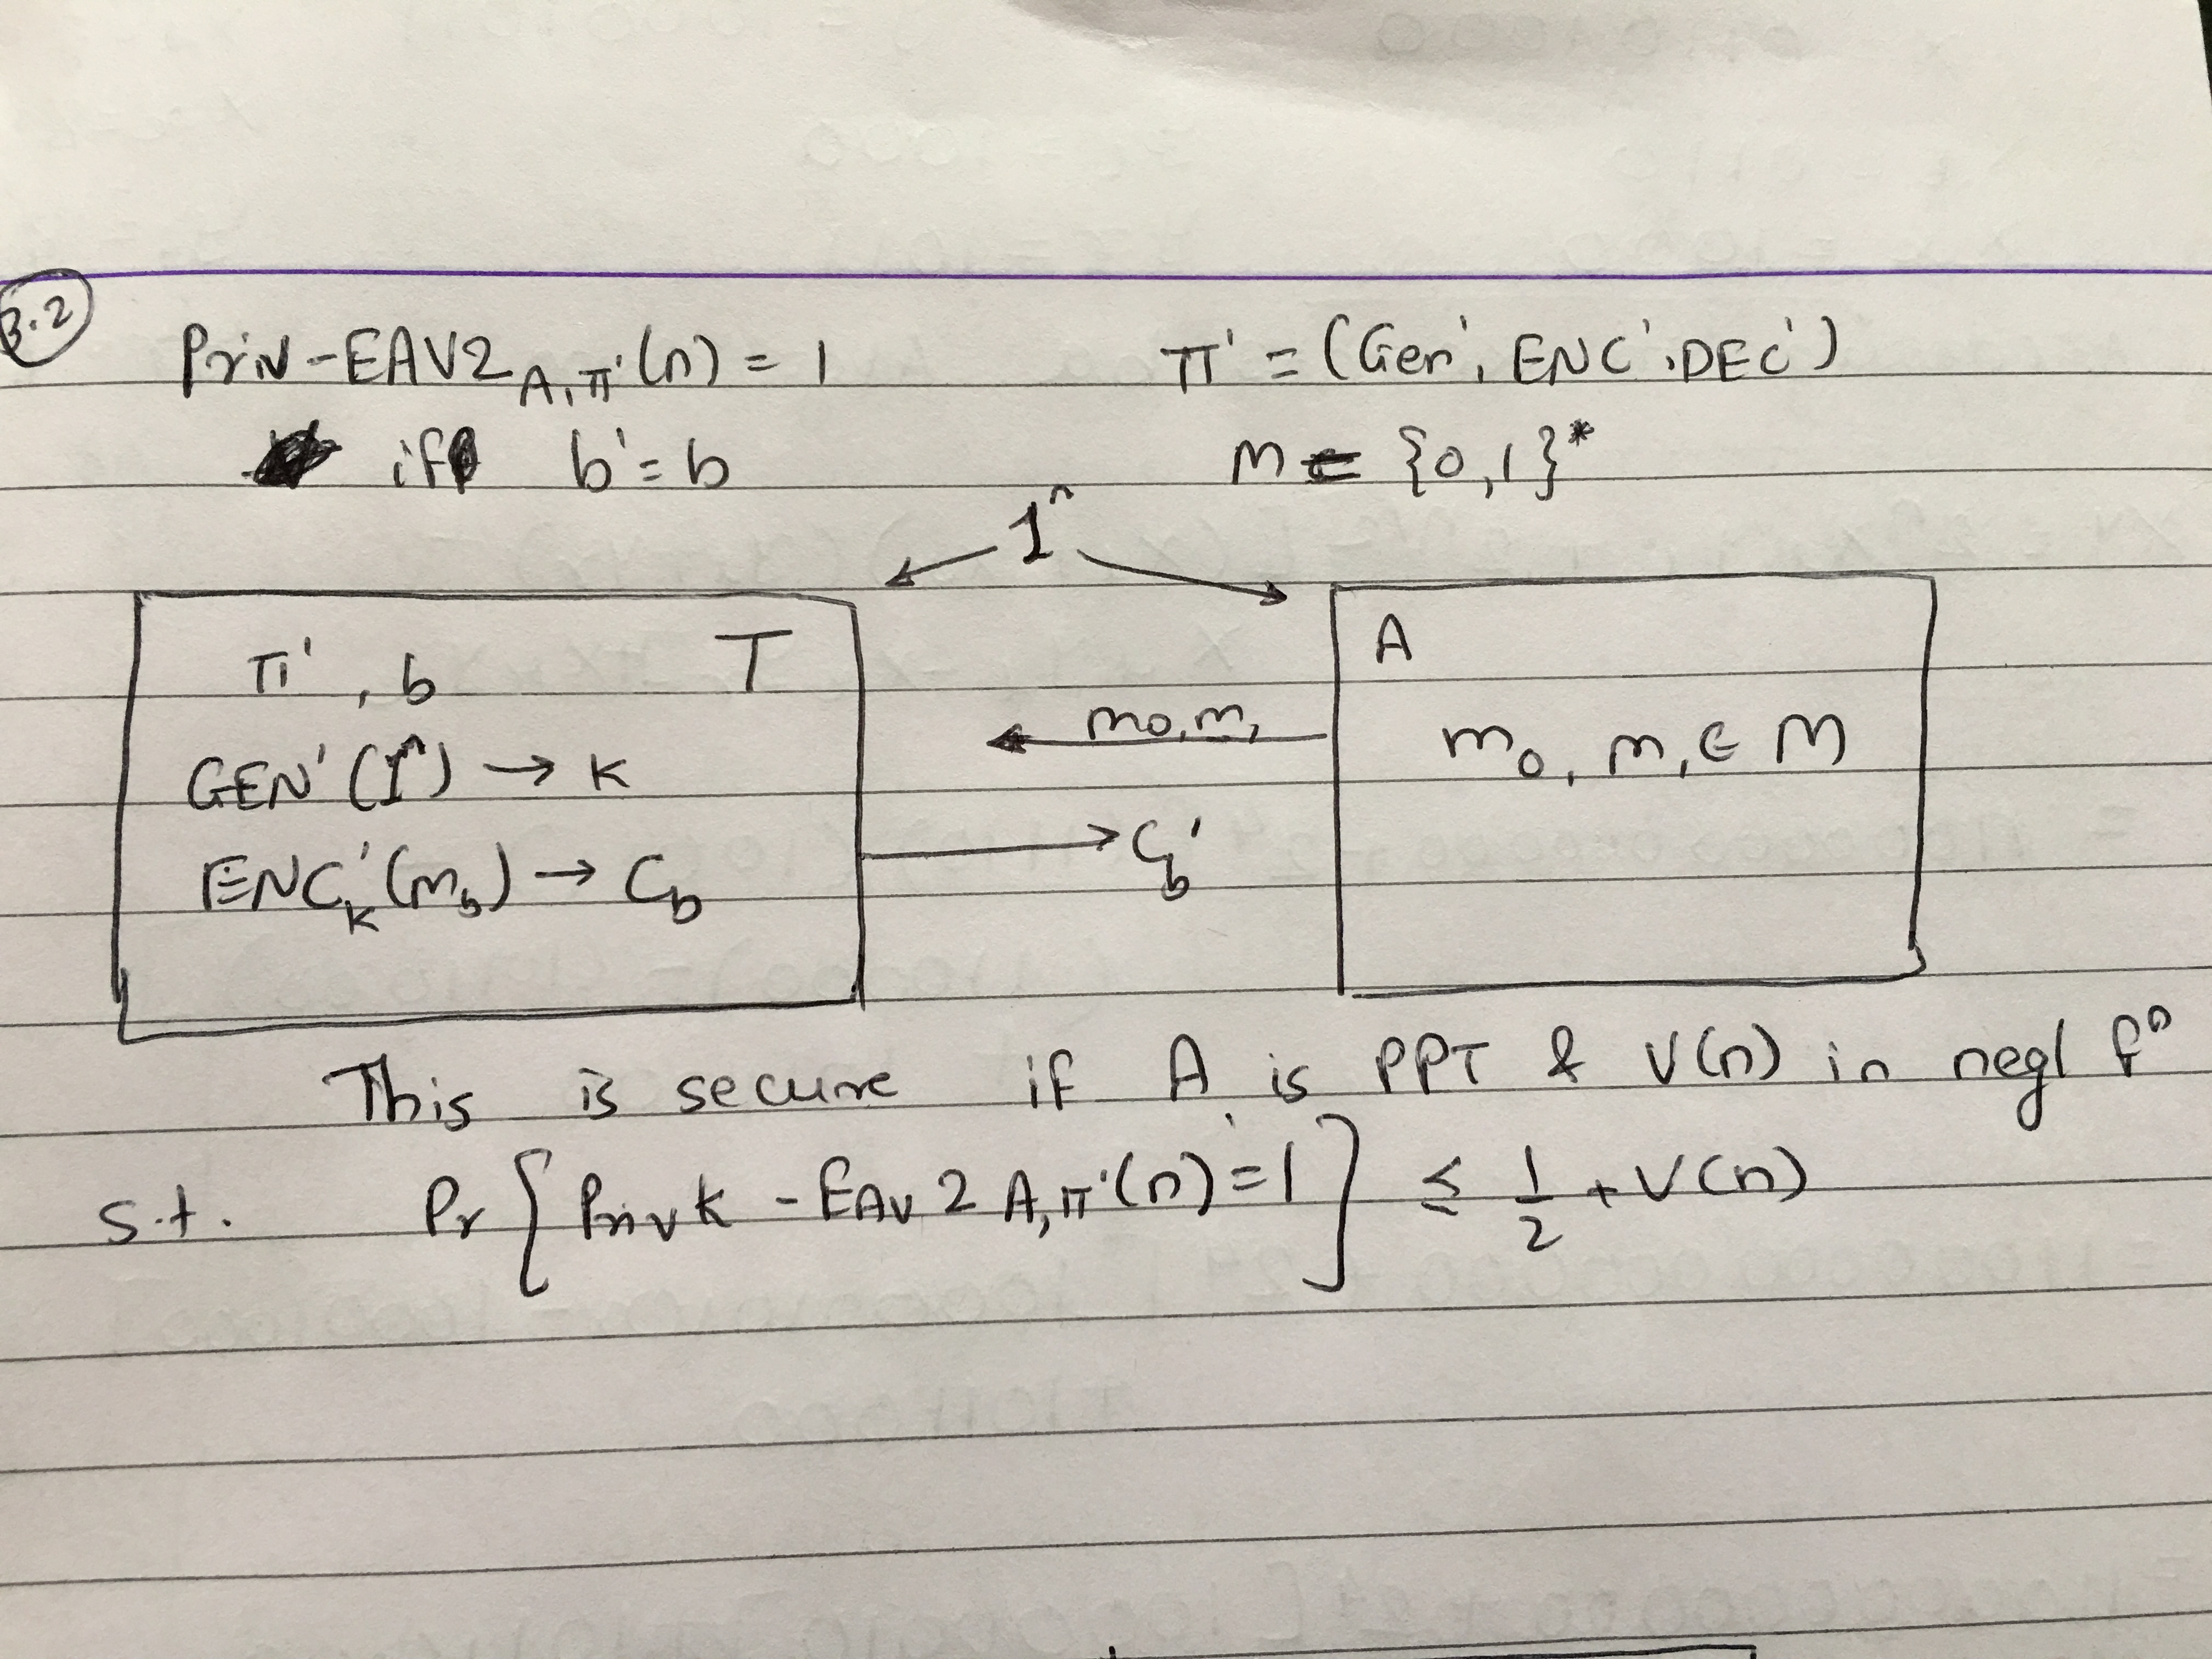 3.2
Priv-EAV2 A,π'(n) = 1 π' = (Gen', ENC', DEC')
if b' = b M = {0,1}*
1ⁿ
π', b T
GEN'(1ⁿ) → K
ENC'ₖ(m_b) → C_b
m₀, m₁
C_b'
A
m₀, m₁ ∈ M
This is secure if A is PPT & V(n) in negl fⁿ
s.t. Pr { Privk-EAV2 A,π'(n) = 1 } ≤ 1/2 + V(n)